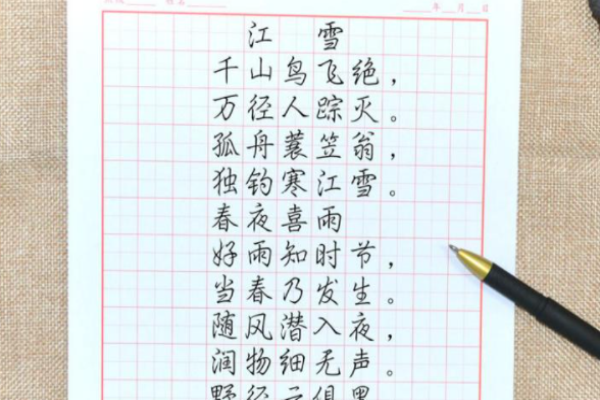 年 月 日
江 雪
千山鸟飞绝，
万径人踪灭。
孤舟蓑笠翁，
独钓寒江雪。
春夜喜雨
好雨知时节，
当春乃发生。
随风潜入夜，
润物细无声。
野径云俱黑